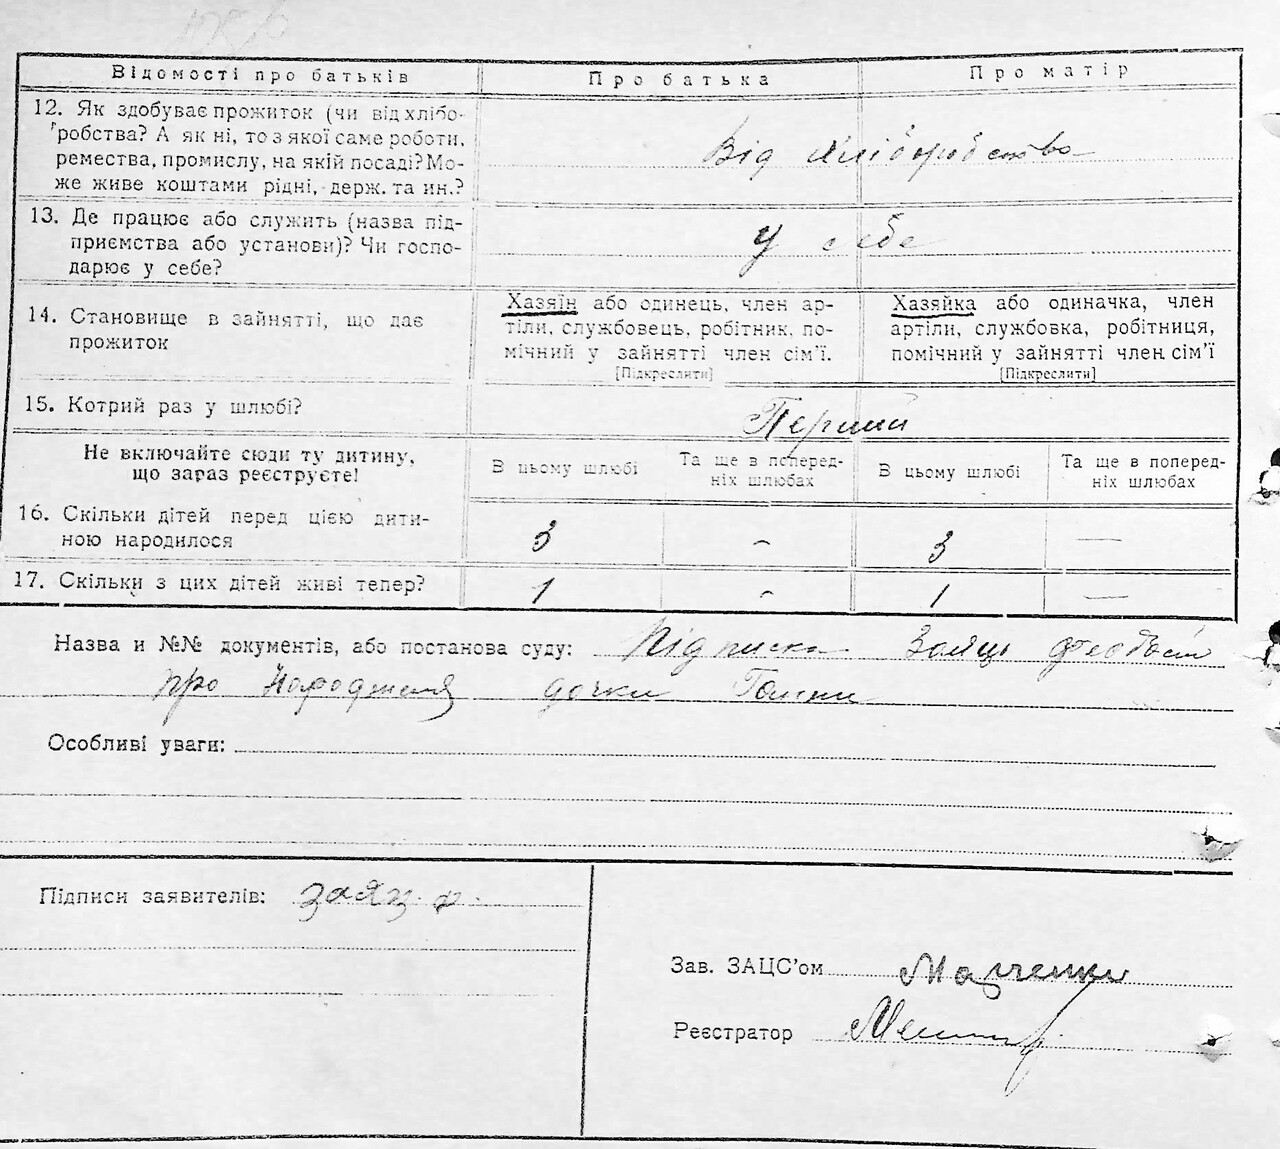 Відомості про батьків Про батька Про матір
12. Як здобуває прожиток (чи від хлібо-
робства? А як ні, то з якої саме роботи,
ремества, промислу, на якій посаді? Мо-
же живе коштами рідні, держ. та ин.?
Від хліборобства
13. Де працює або служить (назва під-
приємства або установи)? Чи госпо-
дарює у себе?
У себе
14. Становище в зайнятті, що дає
прожиток
Хазяїн або одинець, член ар-
тіли, службовець, робітник, по-
мічний у зайнятті член сім'ї.
[Підкреслити]
Хазяйка або одиначка, член
артіли, службовка, робітниця,
помічний у зайнятті член сім'ї
[Підкреслити]
15. Котрий раз у шлюбі?
Перший
Не включайте сюди ту дитину,
що зараз реєструєте!
В цьому шлюбі
Та ще в поперед-
ніх шлюбах
В цьому шлюбі
Та ще в поперед-
ніх шлюбах
16. Скільки дітей перед цією дити-
ною народилося
3 - 3 —
17. Скільки з цих дітей живі тепер? 1 - 1 —
Назва и №№ документів, або постанова суду: Підписка Заяць
про народження дочки Галини
Особливі уваги:
Підписи заявителів: заяц. ф.
Зав. ЗАЦС'ом Марченко
Реєстратор